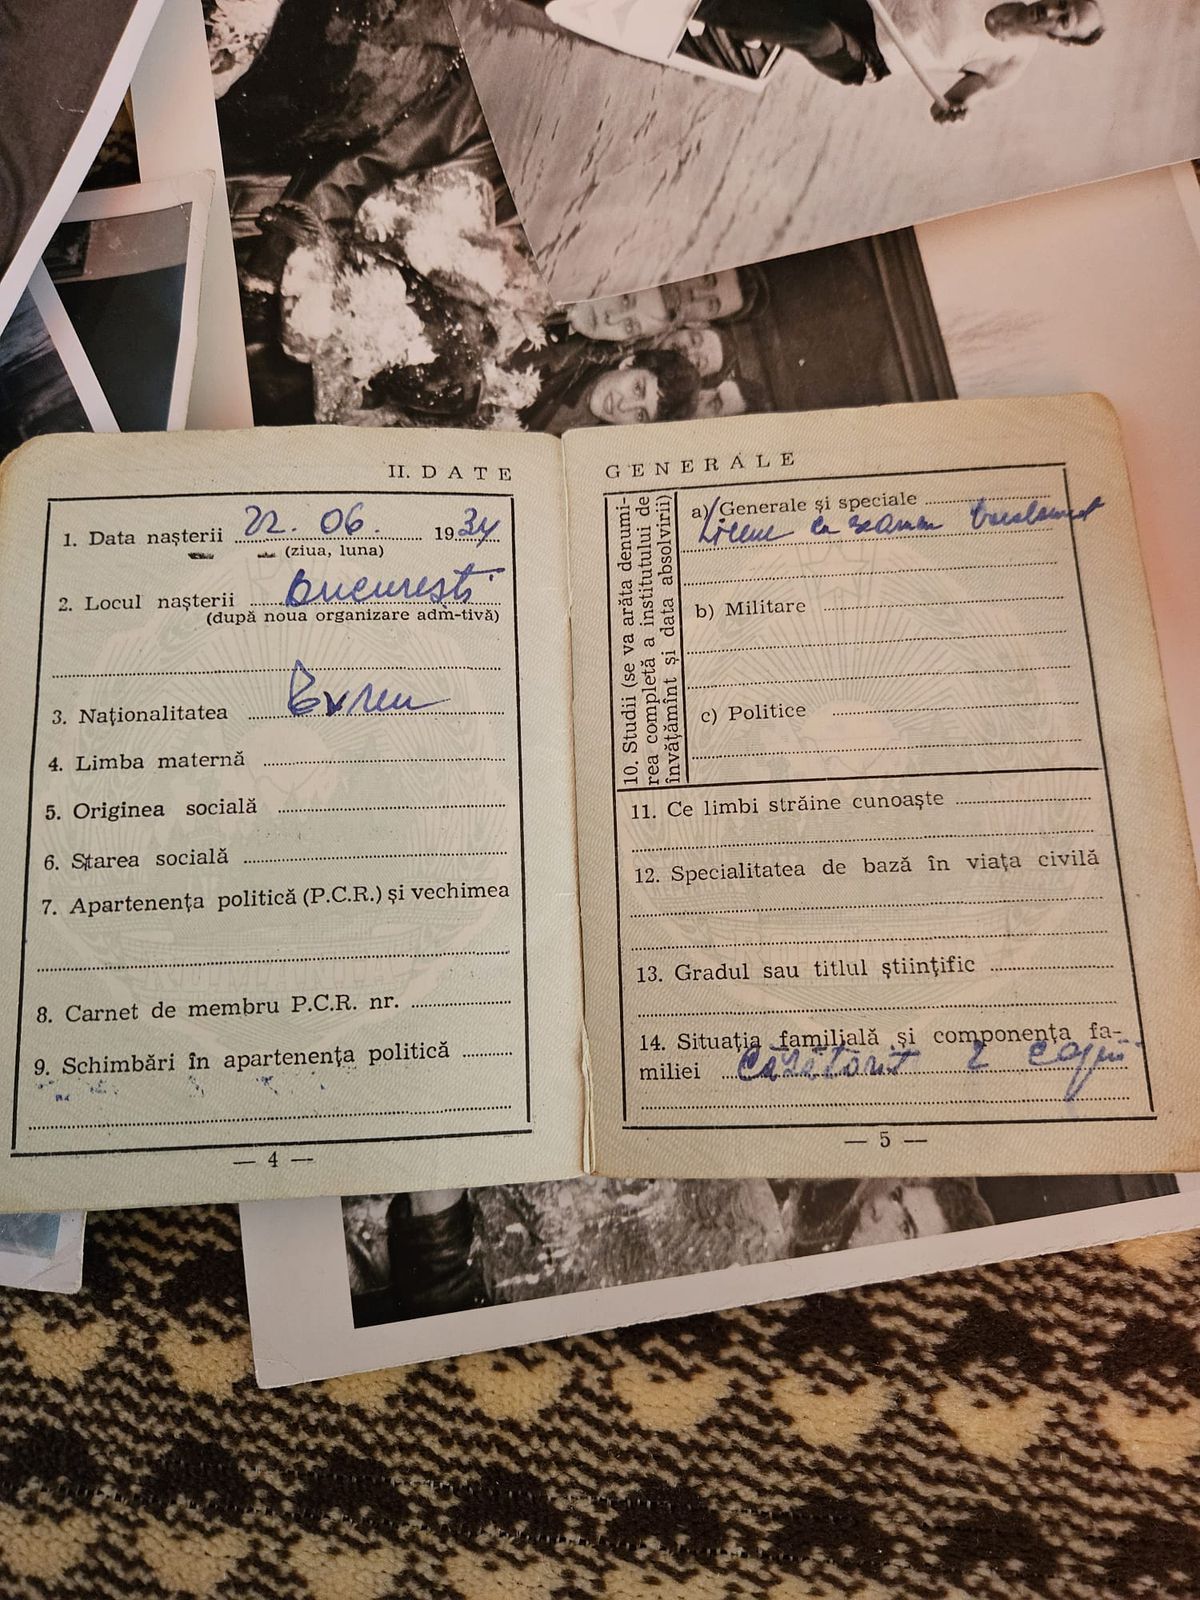 II. DATE
1. Data nașterii 22. 06. 1934
(ziua, luna)
2. Locul nașterii București
(după noua organizare adm-tivă)
3. Naționalitatea Evreu
4. Limba maternă
5. Originea socială
6. Starea socială
7. Apartenența politică (P.C.R.) și vechimea
8. Carnet de membru P.C.R. nr.
9. Schimbări în apartenența politică
— 4 —
GENERALE
10. Studii (se va arăta denumi-
rea completă a institutului de
învățămînt și data absolvirii)
a) Generale și speciale
Liceu cu examen bacalaureat
b) Militare
c) Politice
11. Ce limbi străine cunoaște
12. Specialitatea de bază în viața civilă
13. Gradul sau titlul științific
14. Situația familială și componența fa-
miliei Căsătorit 2 copii
— 5 —